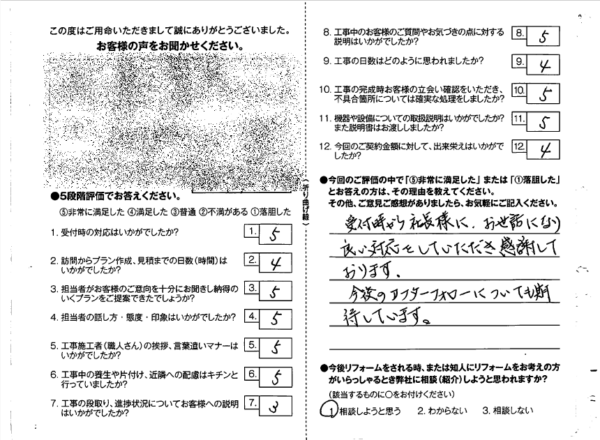 この度はご用命いただきまして誠にありがとうございました。
お客様の声をお聞かせください。
●5段階評価でお答えください。
⑤非常に満足した ④満足した ③普通 ②不満がある ①落胆した
1. 受付時の対応はいかがでしたか?
1. 5
2. 訪問からプラン作成、見積までの日数(時間)は
いかがでしたか?
2. 4
3. 担当者がお客様のご意向を十分にお聞きし納得の
いくプランをご提案できたでしょうか?
3. 5
4. 担当者の話し方・態度・印象はいかがでしたか?
4. 5
5. 工事施工者(職人さん)の挨拶、言葉遣いマナーは
いかがでしたか?
5. 5
6. 工事中の養生や片付け、近隣への配慮はキチンと
行っていましたか?
6. 5
7. 工事の段取り、進捗状況についてお客様への説明
はいかがでしたか?
7. 3
(折り曲げ線)
8. 工事中のお客様のご質問やお気づきの点に対する
説明はいかがでしたか?
8. 5
9. 工事の日数はどのように思われましたか?
9. 4
10. 工事の完成時お客様の立会い確認をいただき、
不具合箇所については確実な処理をしましたか?
10. 5
11. 機器や設備についての取扱説明はいかがでしたか?
また説明書はお渡ししましたか?
11. 5
12. 今回のご契約金額に対して、出来栄えはいかがで
したか?
12. 4
●今回のご評価の中で「⑤非常に満足した」または「①落胆した」
とお答えの方は、その理由を教えてください。
その他、ご意見ご感想がありましたら、お気軽にご記入ください。
受付時から社長様に、お世話になり
良い対応をしていただき感謝して
おります。
今後のアフターフォローについても期
待しています。
●今後リフォームをされる時、または知人にリフォームをお考えの方
がいらっしゃるとき弊社に相談(紹介)しようと思われますか?
(該当するものに○をお付けください)
1. 相談しようと思う 2. わからない 3. 相談しない